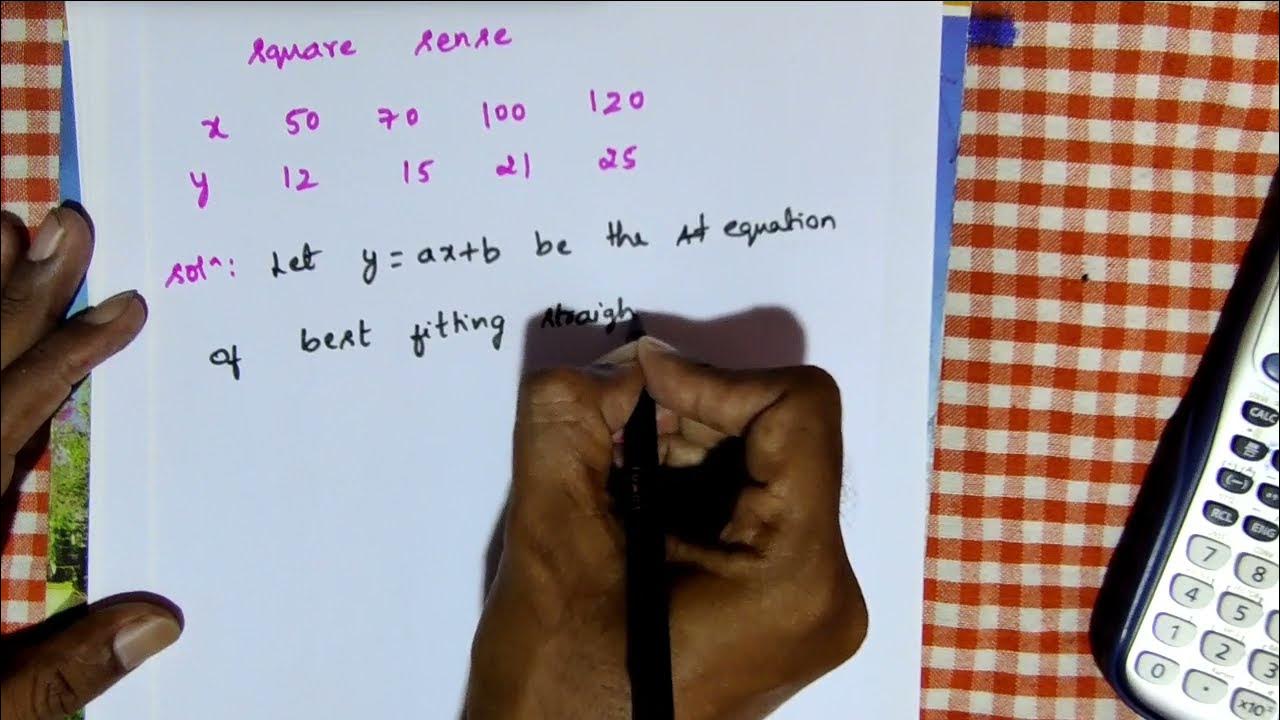 square sense
x 50 70 100 120
y 12 15 21 25
soln: Let y = ax+b be the equation
of best fitting straigh
CALC
(−)
RCL ENG
7 8
4 5
1 2 3
0 . ×10